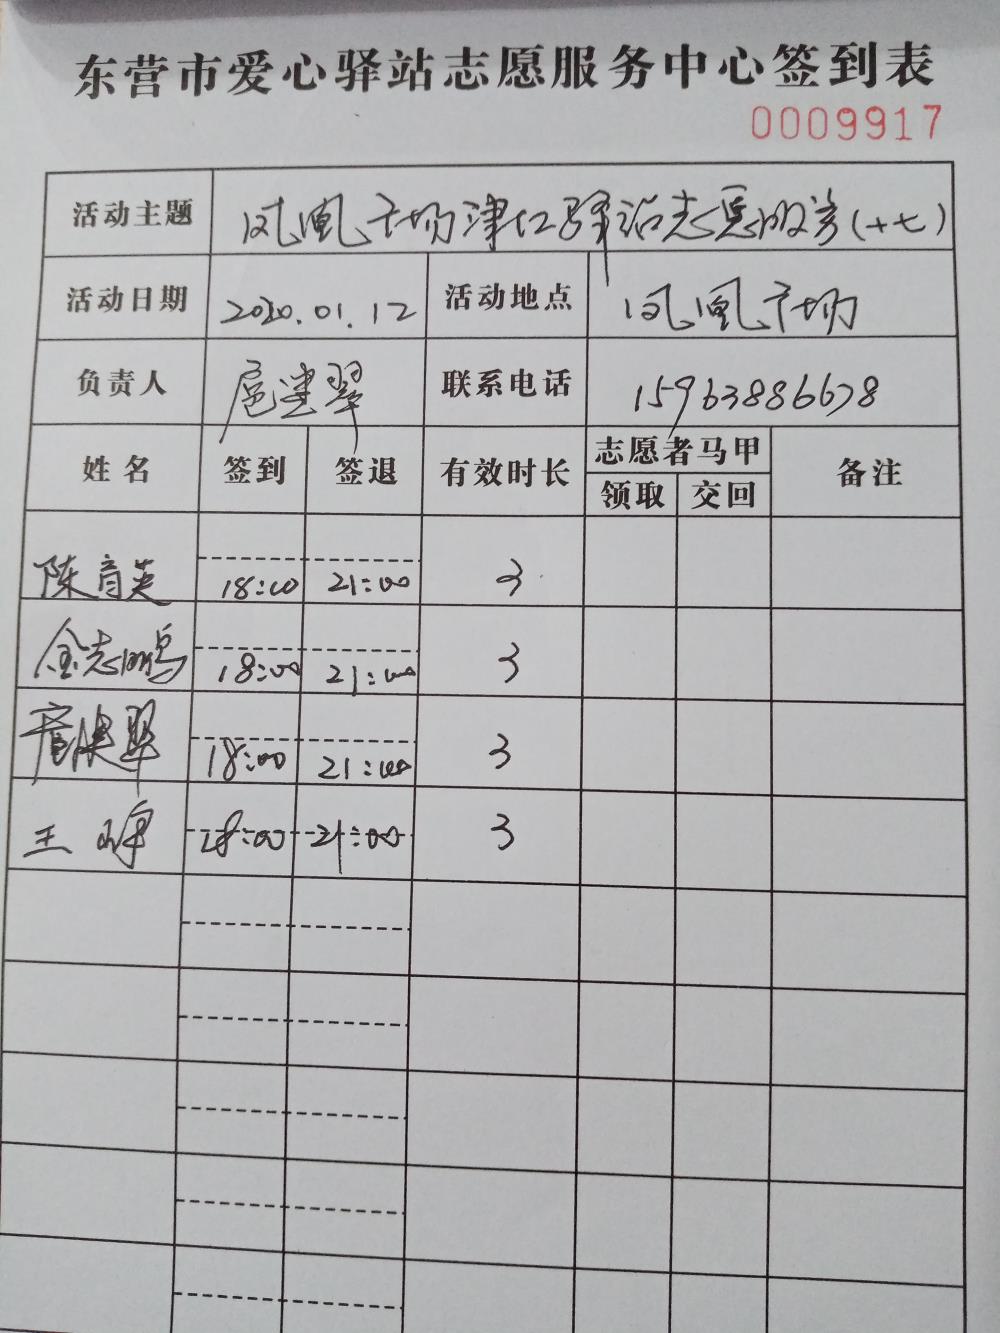 东营市爱心驿站志愿服务中心签到表
0009917
活动主题 凤凰广场津红驿站志愿服务(十七)
活动日期 2020.01.12 活动地点 凤凰广场
负责人 扈建翠 联系电话 15963886678
姓名 签到 签退 有效时长 志愿者马甲 备注
领取 交回
陈育英 18:00 21:00 3
金志鹏 18:00 21:00 3
扈建翠 18:00 21:00 3
王峰 18:00 21:00 3